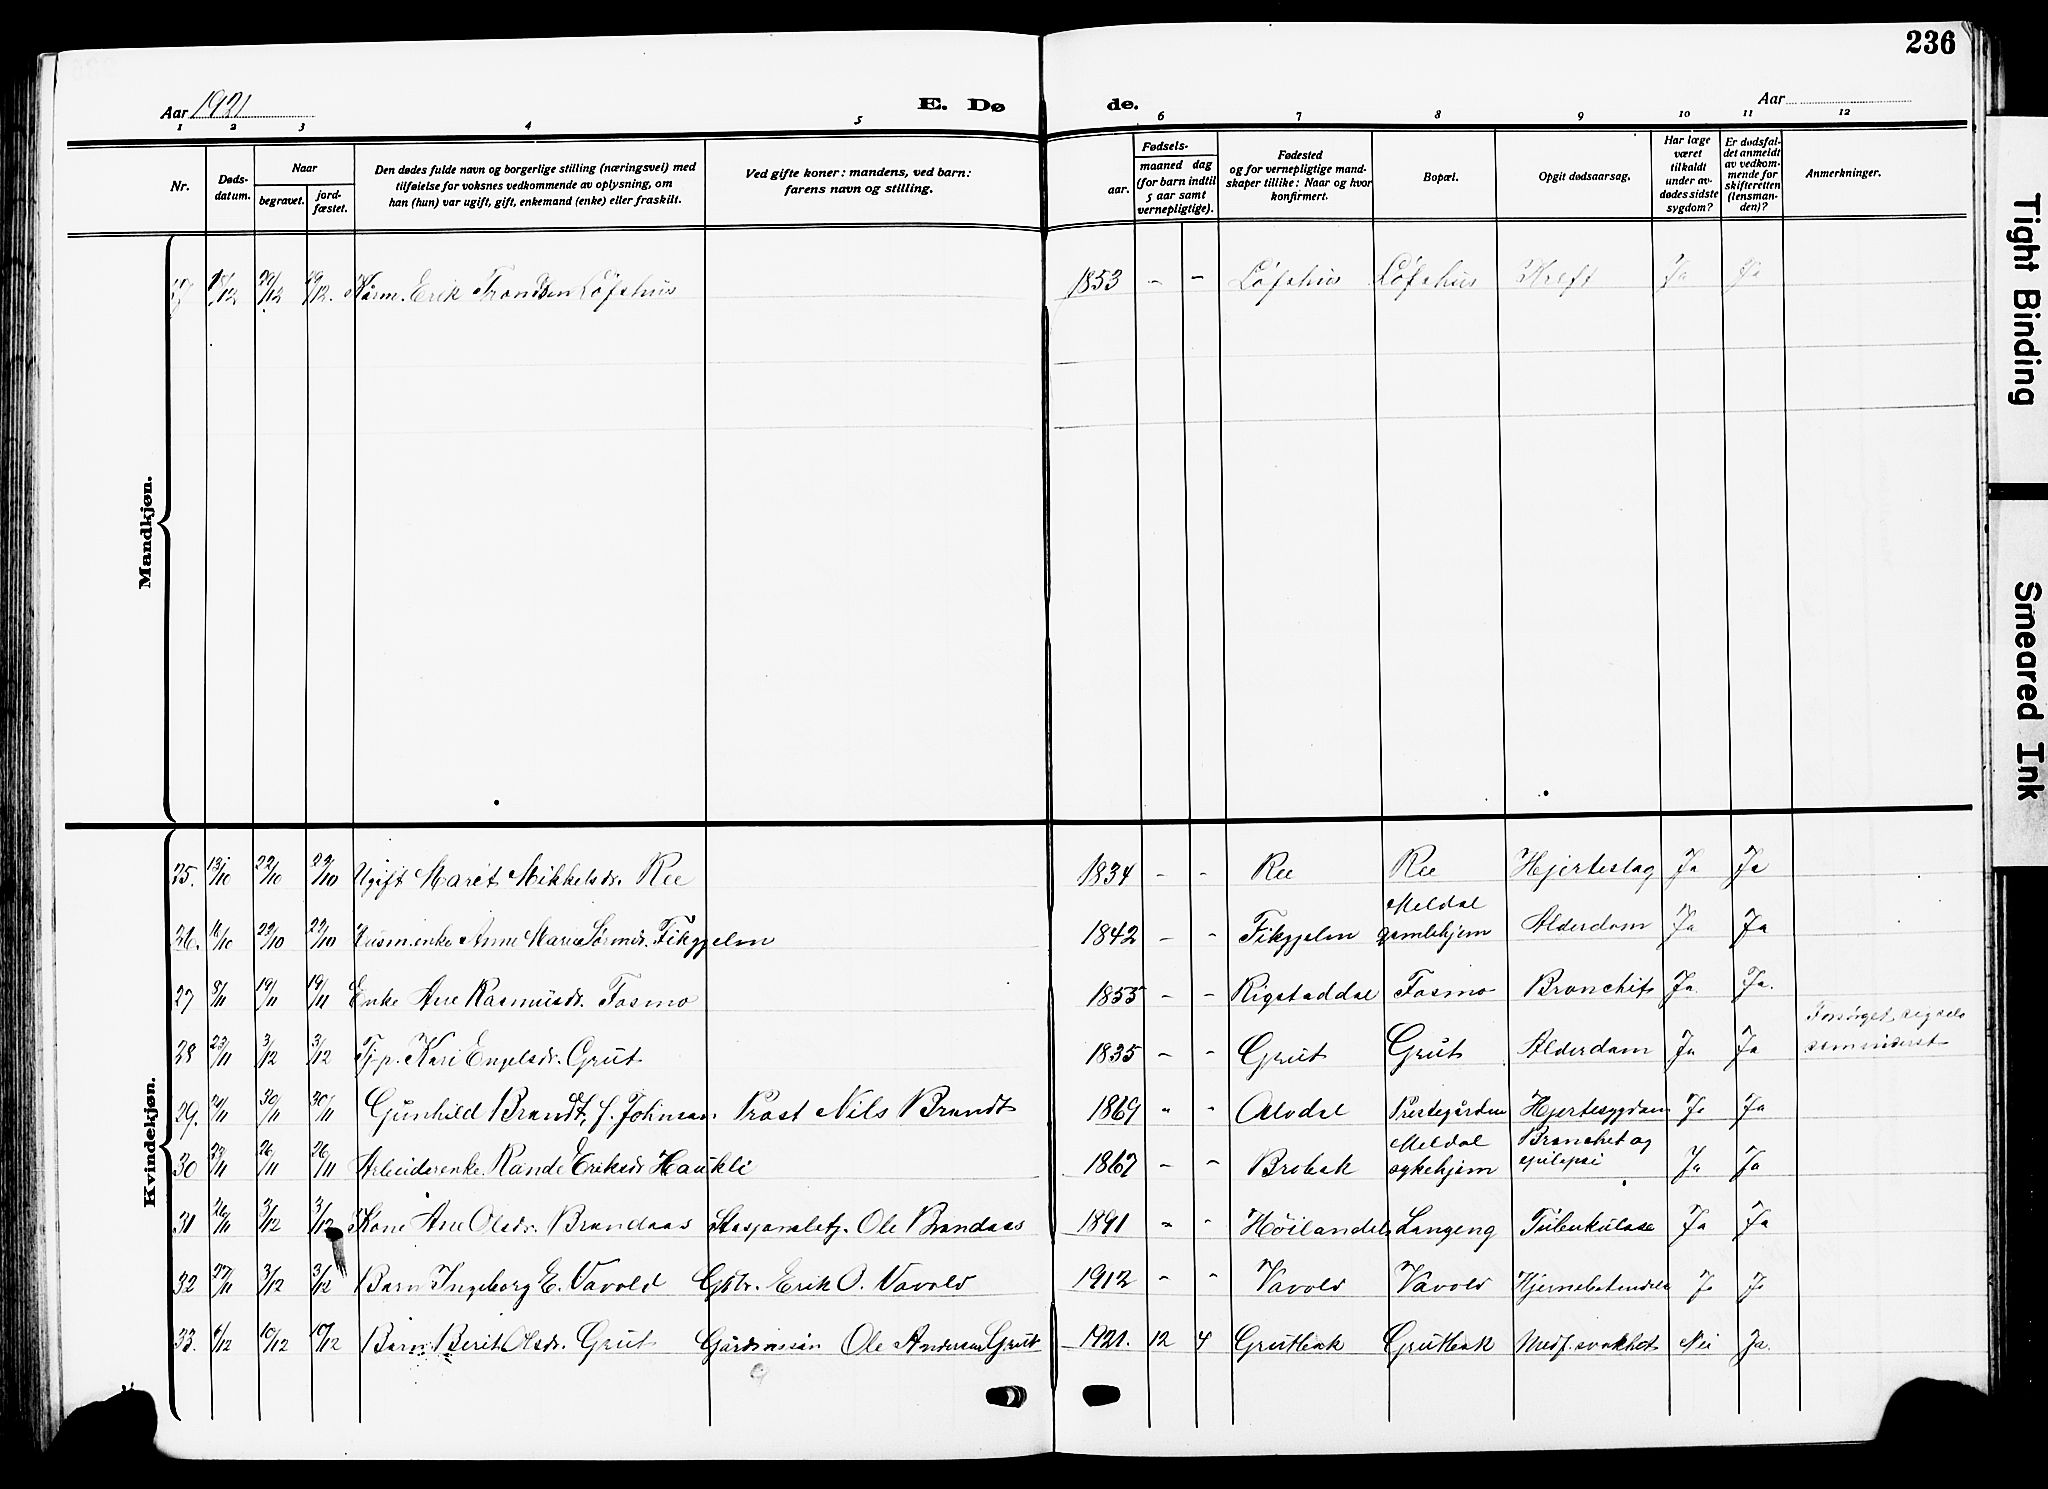 236
Aar 1921
E. Dø
de.
Aar
1 2 3 4 5 6 7 8 9 10 11 12
Nr.
Døds-
datum.
Naar
begravet.
jord-
fæstet.
Den dødes fulde navn og borgerlige stilling (næringsvei) med
tilføielse for voksnes vedkommende av oplysning, om
han (hun) var ugift, gift, enkemand (enke) eller fraskilt.
Ved gifte koner: mandens, ved barn:
farens navn og stilling.
Fødsels-
aar.
maaned dag
(for barn indtil
5 aar samt
vernepligtige).
Fødested
og for vernepligtige mand-
skaper tillike: Naar og hvor
konfirmert.
Bopæl.
Opgit dødsaarsag.
Har læge
været
tilkaldt
under av-
dødes sidste
sygdom?
Er dødsfal-
det anmeldt
av vedkom-
mende for
skifteretten
(lensman-
den)?
Anmerkninger.
Mandkjøn.
Kårm. Erik Trondsen Løfshus 1853 - - Løfshus Løfshus Kreft Ja Ja
Kvindekjøn.
25. 13/10 22/10 22/10 Ugift Marit Mikkelsdr. Ree 1834 - - Ree Ree Hjerteslag Ja Ja
26. 16/10 29/10 29/10 Husm.enke Anne Maria Sørensdr. Fikkjelm 1842 - - Fikkjelm Meldal gamlehjem Alderdom Ja Ja
27 8/11 19/11 19/11 Enke Ane Rasmusdr. Fosmo 1855 - - Rigstaddal Fosmo Bronchit Ja Ja.
28 23/11 3/12 3/12 Tj.p. Kari Engelsdr. Grut 1835 - - Grut Grut Alderdom Ja Ja Forsørget sig selv
29. 21/11 30/11 30/11 Gunhild Brandt, f. Johnsen. Prost Nils Brandt 1869 - - Alvdal Prestegården Hjertesygdom Ja Ja
30 23/11 26/11 26/11 Arbeiderenke Rande Eriksdr Haukli 1867 - - Brobak Meldal sykehjem Bronchit og epilepsi Ja Ja
31 26/11 3/12 3/12 Kone Ane Olsdr. Brandaas Stasjonsbetj. Ole Brandaas 1891 - - Høilandet Langeng Tuberkulose Ja Ja
32 27/11 3/12 3/12 Barn Ingeborg E. Vavold Gbr. Erik O. Vavold 1912 - - Vavold Vavold Hjernebetendelse Ja Ja
33. 4/12 10/12 10/12 Barn Berit Olsdr. Grut Gårdmann Ole Andersen Grut 1921. 12 4 Grutbak Grutbak Medf. svakhet Nei Ja.
Tight Binding
Smeared Ink